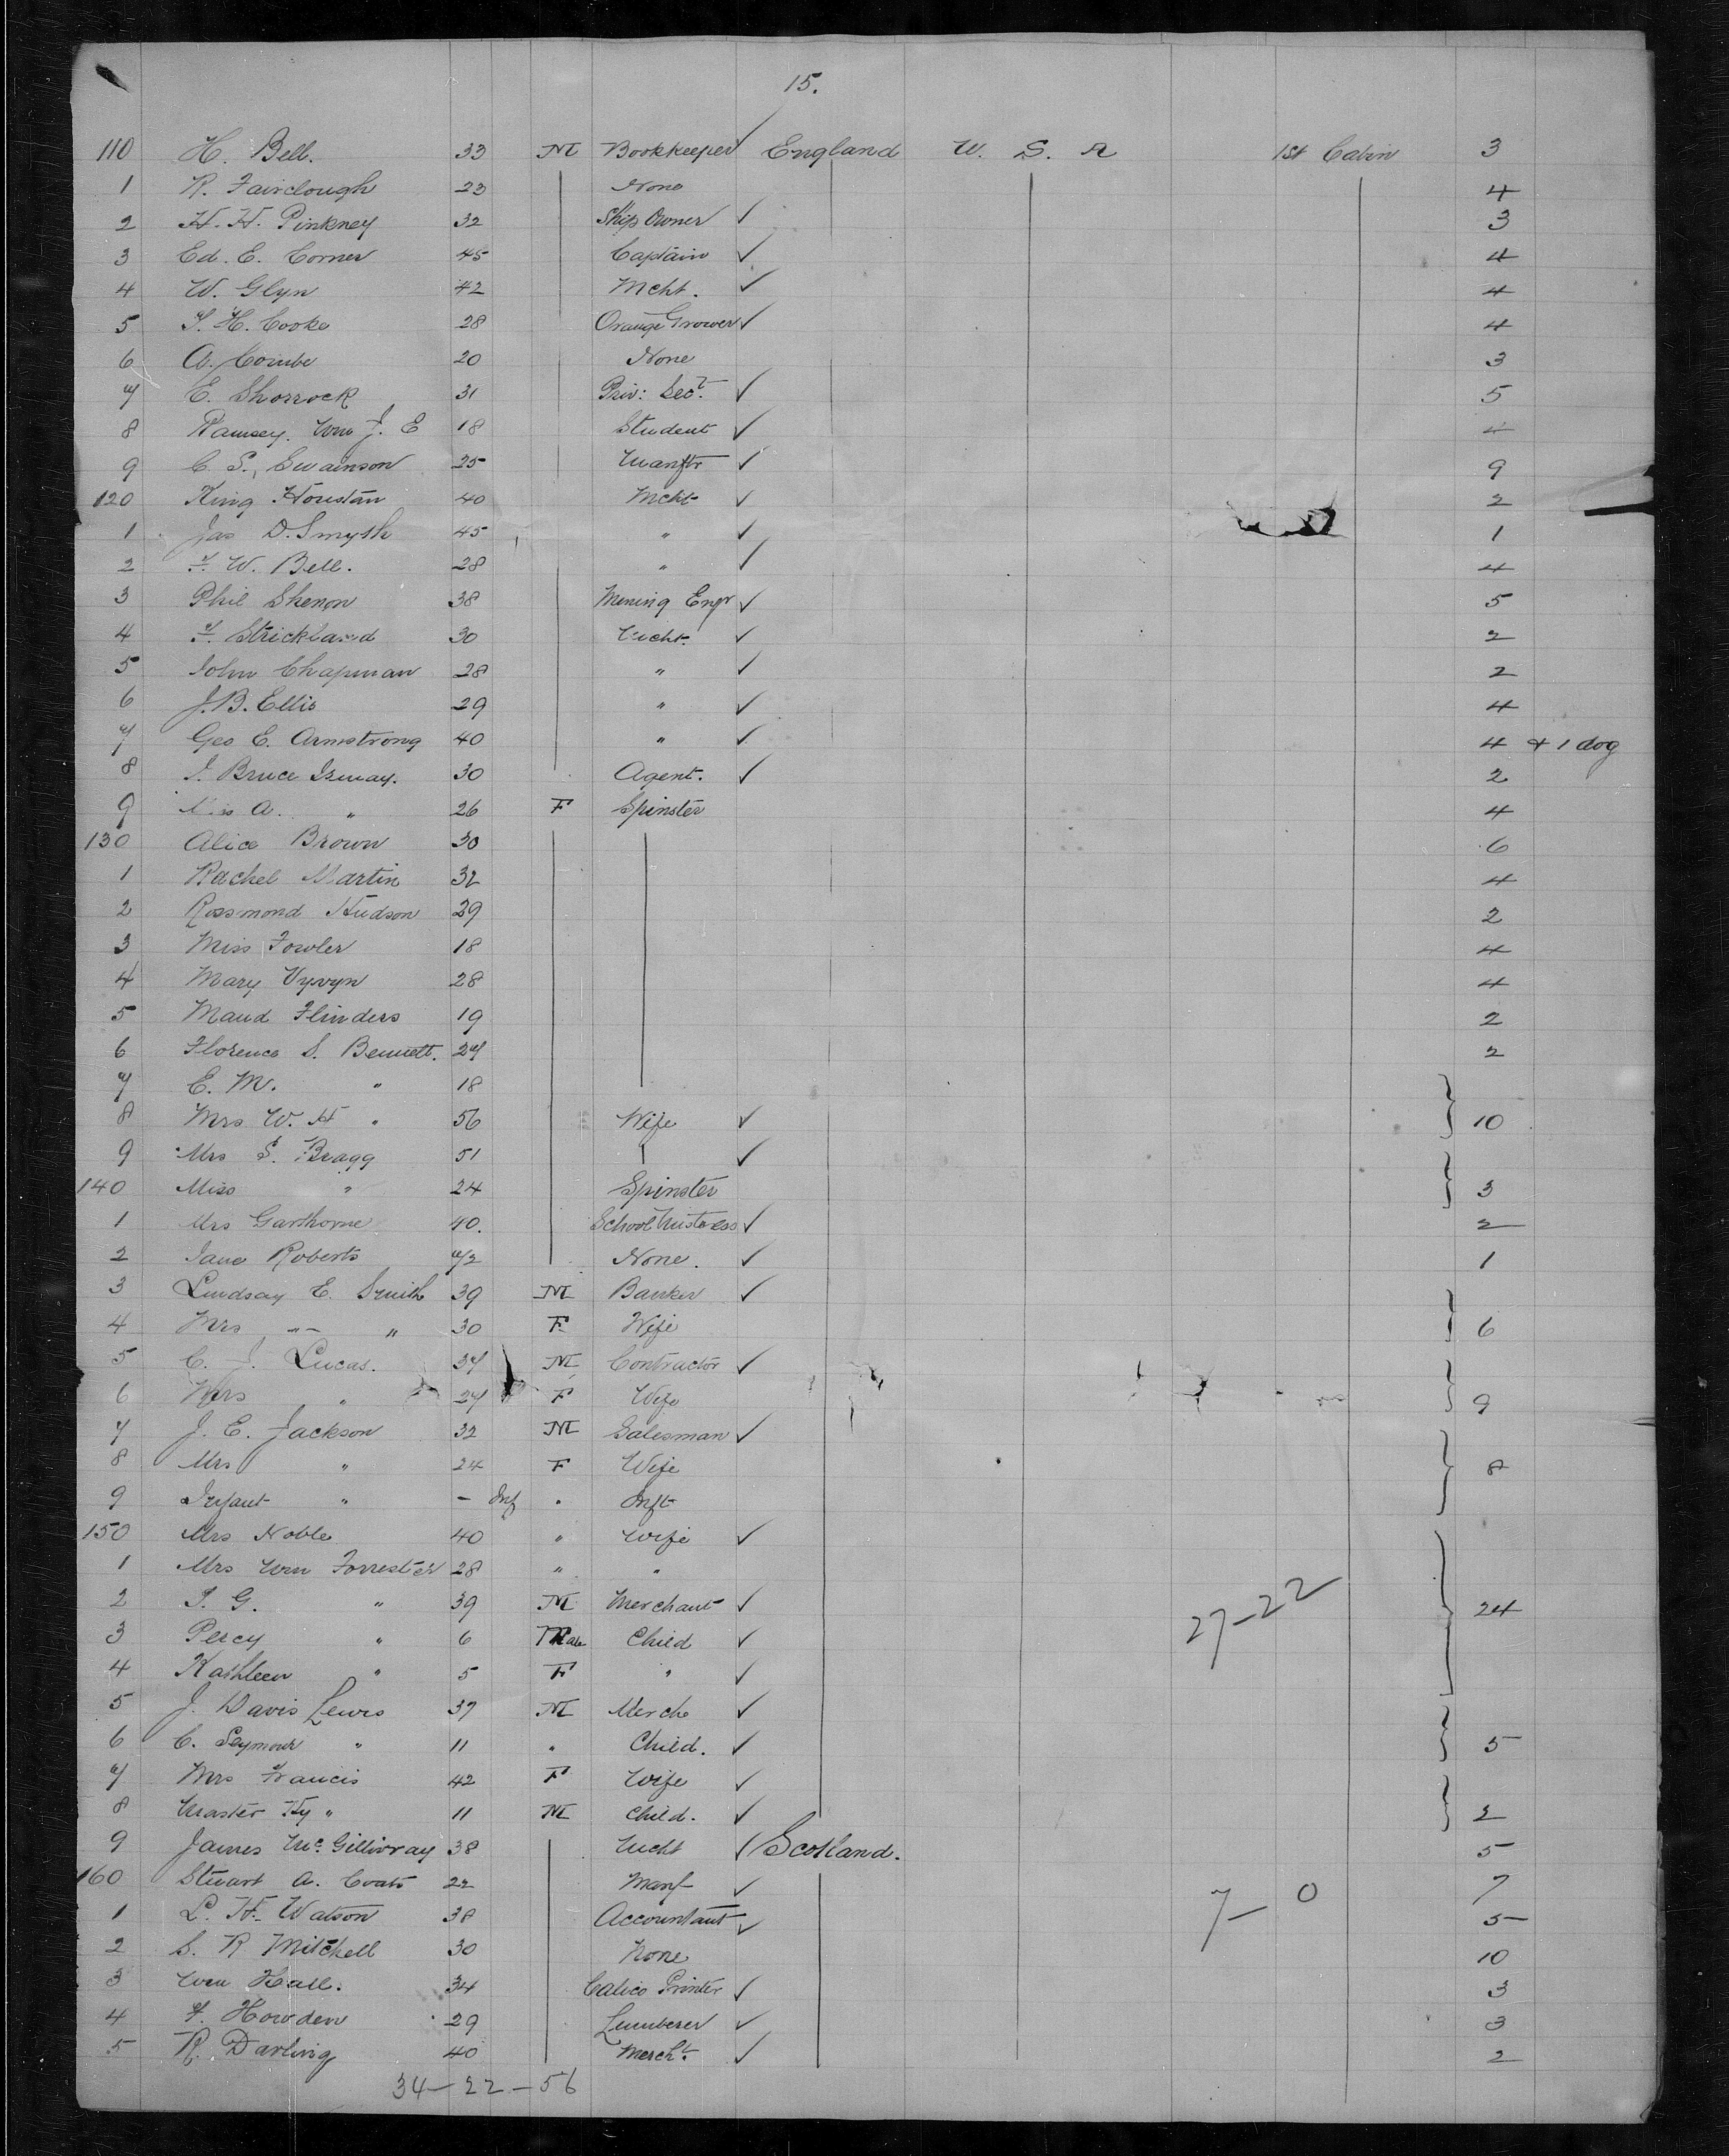 15.
110 H. Bell. 33 M Bookkeeper ✓ England U. S. A 1st Cabin 3
1 R. Fairclough 23 None 4
2 H. H. Pinkney 32 Ship Owner ✓ 3
3 Ed. E. Corner 45 Captain ✓ 4
4 W. Glyn 42 Mcht. ✓ 4
5 S. H. Cooke 28 Orange Grower ✓ 4
6 A. Combe 20 None 3
7 E. Shorrock 31 Priv: Secy. ✓ 5
8 Ramsey. Wm J. E 18 Student ✓ 4
9 C. S. Swainson 25 Manftr ✓ 9
120 King Houstan 40 Mcht ✓ 2
1 Jas D. Smyth 45 " ✓ 1
2 F. W. Bell. 28 " ✓ 4
3 Phil Shenon 38 Mining Engr ✓ 5
4 F. Strickland 30 Mcht. ✓ 2
5 John Chapman 28 " ✓ 2
6 J. B. Ellis 29 " ✓ 4
7 Geo E. Armstrong 40 " ✓ 4 + 1 dog
8 J. Bruce Ismay. 30 Agent. ✓ 2
9 Miss A. " 26 F Spinster 4
130 Alice Brown 30 6
1 Rachel Martin 32 4
2 Rossmond Hudson 29 2
3 Miss Fowler 18 4
4 Mary Vyvyn 28 4
5 Maud Flinders 19 2
6 Florence S. Bennett. 27 2
7 E. M. " 18
8 Mrs W. H " 56 Wife ✓ 10
9 Mrs S. Bragg 51 ✓
140 Miss " 24 Spinster 3
1 Mrs Garthorne 40. School Mistress ✓ 2
2 Jane Roberts 72 None. ✓ 1
3 Lindsay E. Smith 39 M Banker ✓
4 Mrs " " 30 F Wife 6
5 C. J. Lucas. 37 M Contractor ✓
6 Mrs " 27 F Wife 9
7 J. E. Jackson 32 M Salesman ✓
8 Mrs " 24 F Wife 8
9 Infant " - Inf " Inft
150 Mrs Noble 40 " Wife ✓
1 Mrs Wm Forrester 28 " "
2 S. G. " 39 M Merchant ✓ 27-22 24
3 Percy " 6 Male Child ✓
4 Kathleen " 5 F " ✓
5 J. Davis Lewis 37 M Mercht ✓
6 C. Seymour " 11 " Child. ✓ 5
7 Mrs Francis 42 F Wife ✓
8 Master Hy " 11 M Child. ✓ 2
9 James McGillivray 38 Mcht ✓ Scotland. 5
160 Stuart A. Coats 22 Manf ✓ 7-0 7
1 L. H. Watson 38 Accountant ✓ 5
2 S. R Mitchell 30 None 10
3 Wm Hall. 34 Calico Printer ✓ 3
4 F. Howden 29 Lumberer ✓ 3
5 R. Darling 40 Mercht. ✓ 2
34-22-56